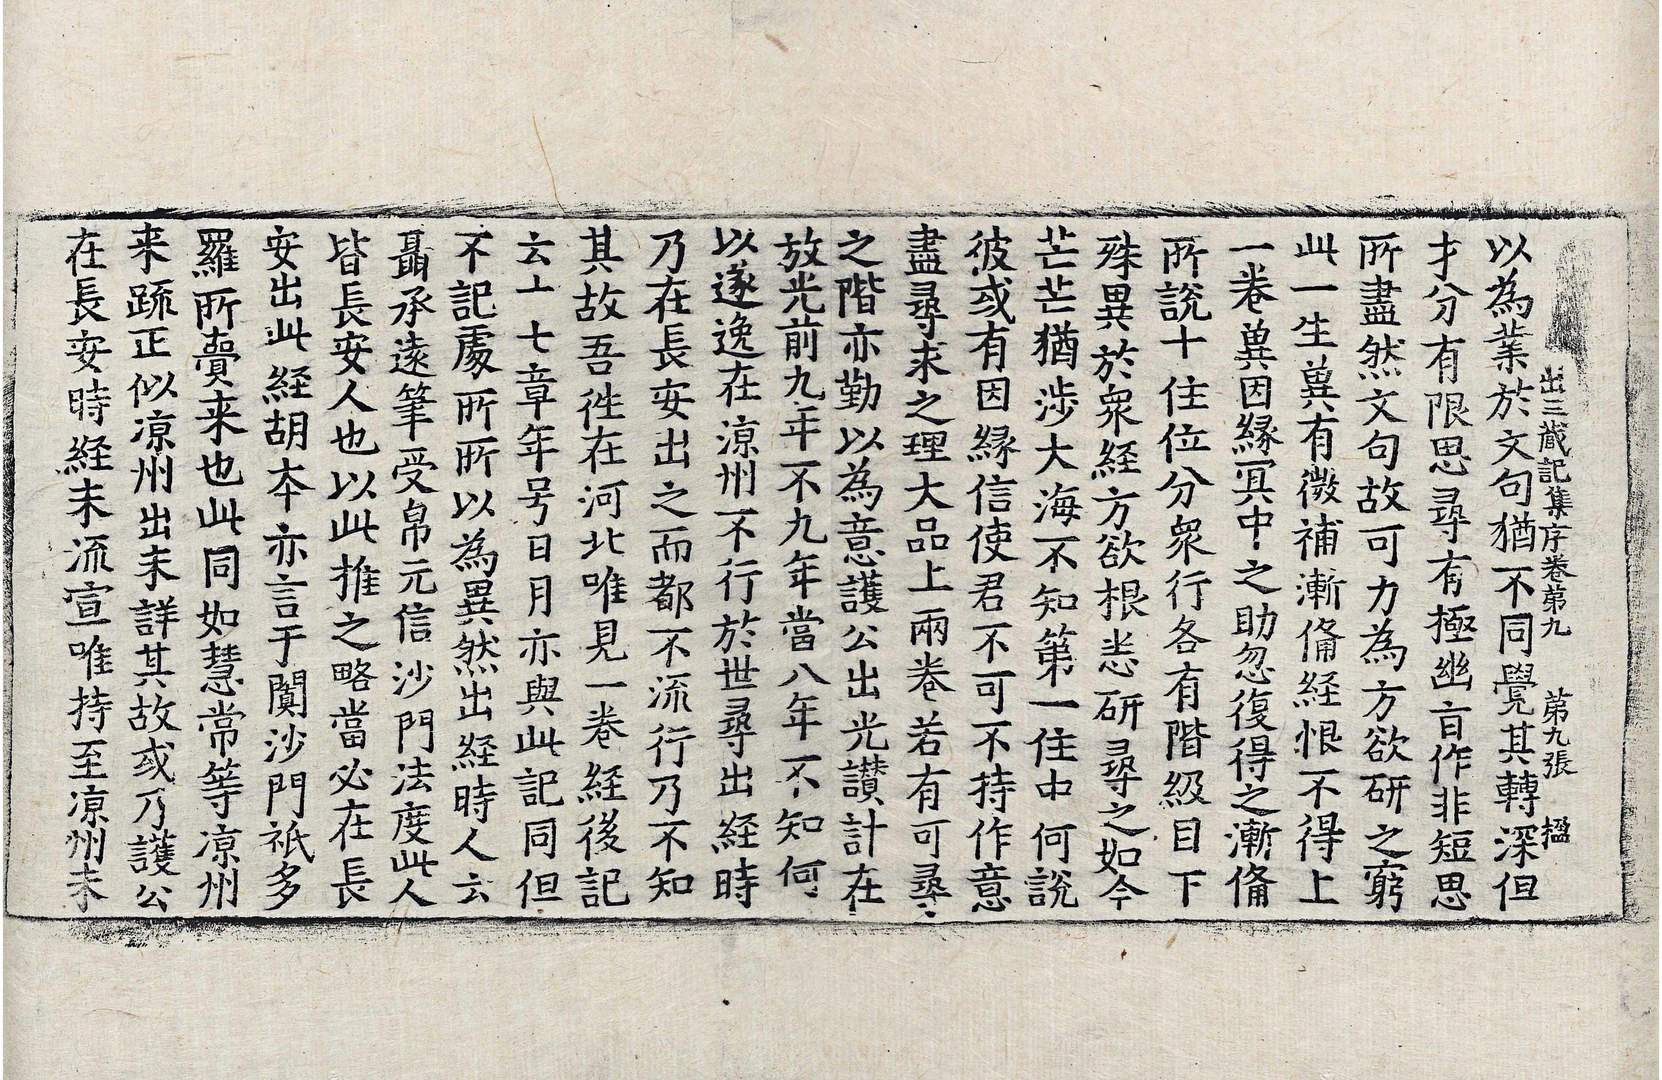 出三藏記集序卷第九　第九張　楹
以為業於文句猶不同覺其轉深但
才分有限思尋有極幽盲作非短思
所盡然文句故可力為方欲研之窮
此一生冀有微補漸俻経恨不得上
一卷冀因縁冥中之助忽復得之漸俻
所說十住位分衆行各有階級目下
殊異於衆経方欲根悉研尋之如今
芒芒猶涉大海不知第一住中何說
彼或有因縁信使君不可不持作意
盡尋求之理大品上兩卷若有可尋
之階亦勤以為意護公出光讃計在
放光前九年不九年當八年不知何
以遂逸在凉州不行於世尋出経時
乃在長安出之而都不流行乃不知
其故吾徃在河北唯見一卷経後記
云十七章年号日月亦與此記同但
不記處所所以為異然出経時人云
聶承遠筆受帛元信沙門法度此人
皆長安人也以此推之略當必在長
安出此経胡夲亦言于闐沙門祇多
羅所賷来也此同如慧常等凉州
来疏正似凉州出未詳其故或乃護公
在長安時経未流宣唯持至凉州未